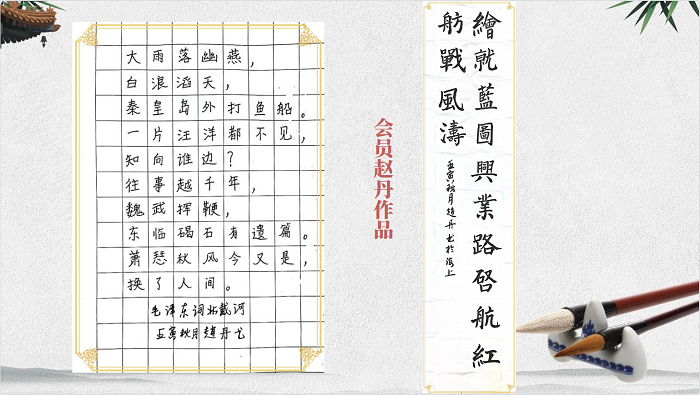 大雨落幽燕，
白浪滔天，
秦皇岛外打鱼船。
一片汪洋都不见，
知向谁边？
往事越千年，
魏武挥鞭，
东临碣石有遗篇。
萧瑟秋风今又是，
换了人间。
毛泽东词北戴河
壬寅秋月赵丹书
会员赵丹作品
繪就藍圖興業路啓航紅
舫戰風濤
壬寅秋月趙丹書於海上